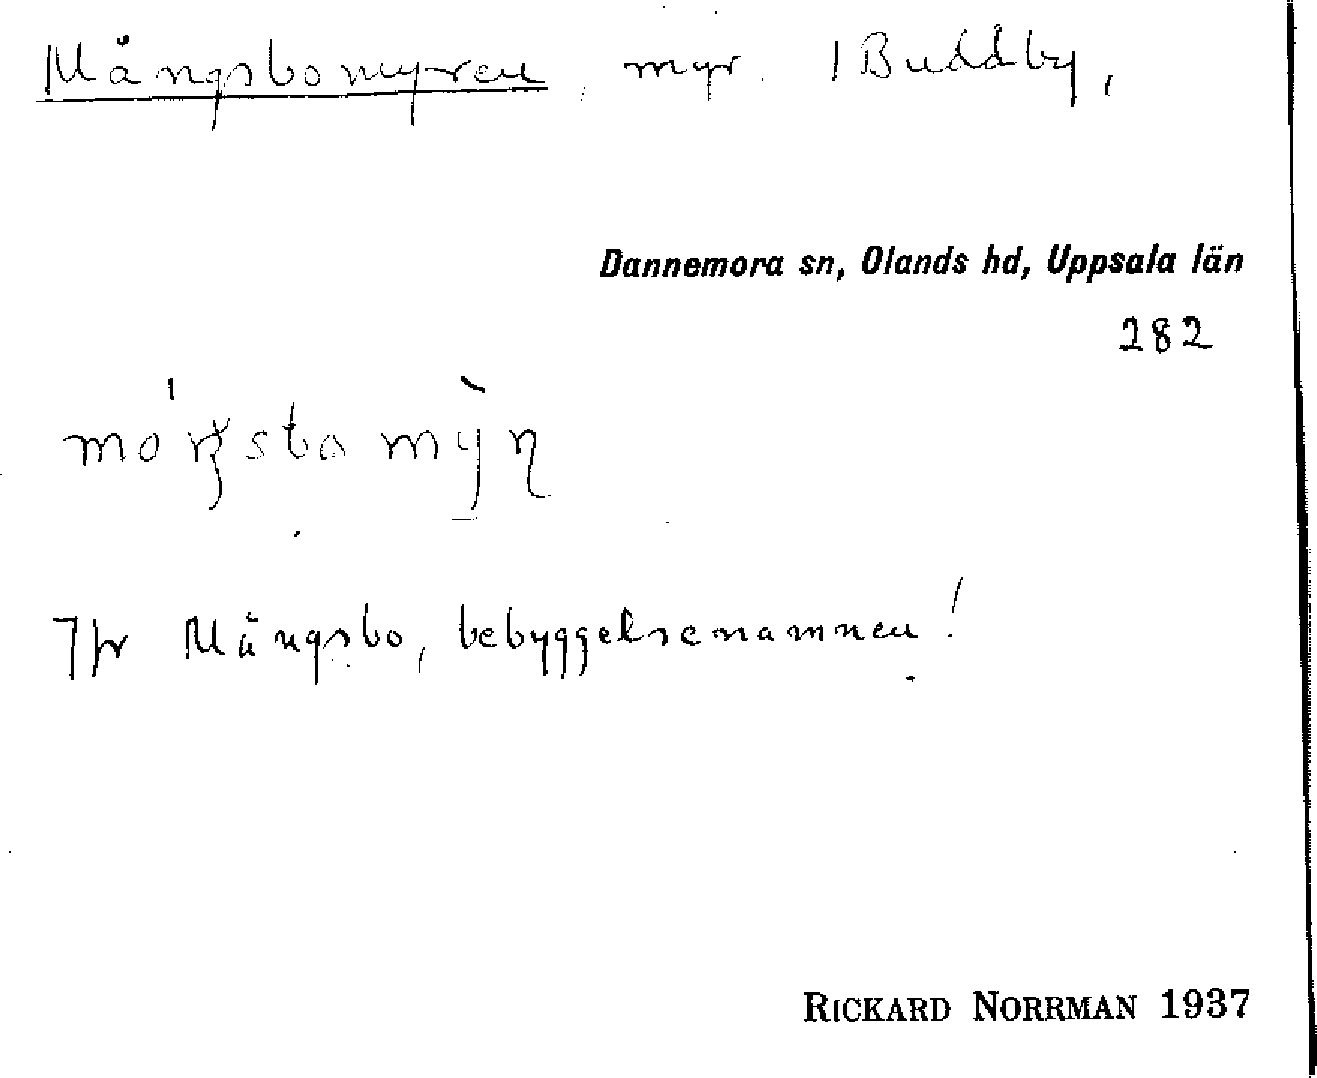 Mångsbomyren, myr. 1 Buddby,
Dannemora sn, Olands hd, Uppsala län
282
Jfr Mångsbo, bebyggelsenamnen!
RICKARD NORRMAN 1937